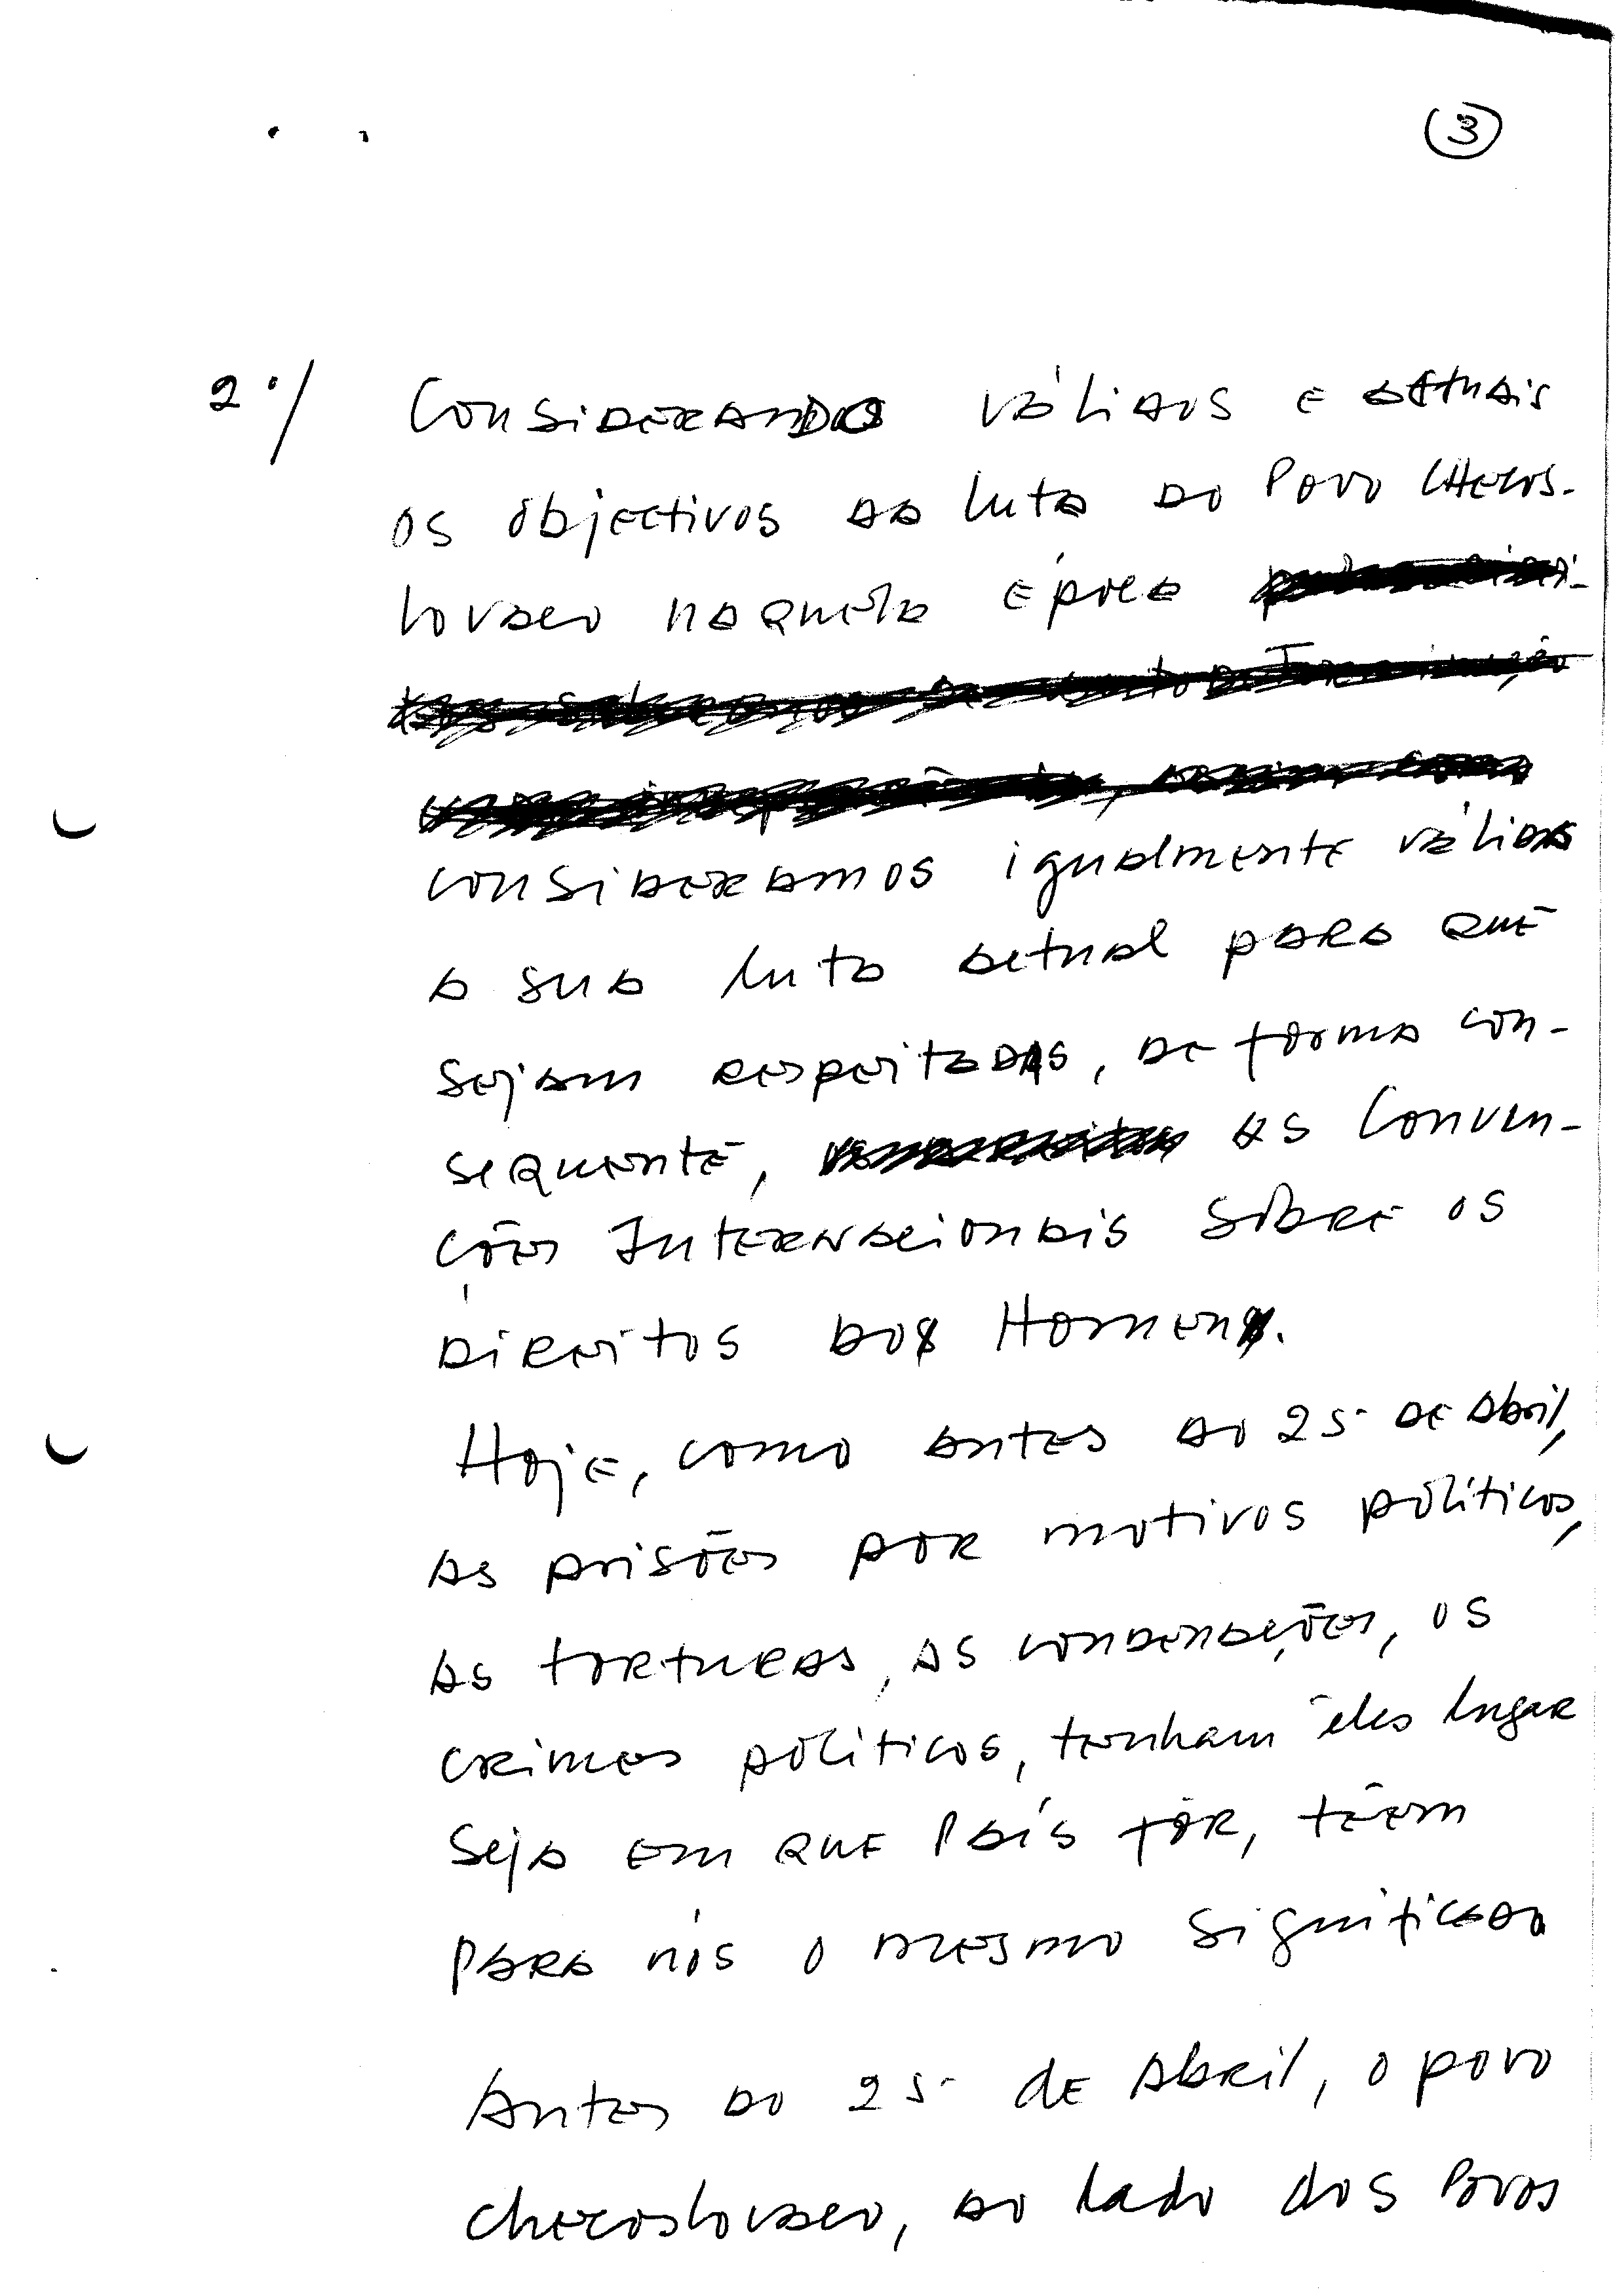 3
2º/ Considerando válidos e actuais
os objectivos da luta do Povo checos-
lovaco naquela época
consideramos igualmente válida
a sua luta actual para que
sejam respeitadas, de forma con-
sequente, as Conven-
ções Internacionais sôbre os
Direitos do Homem.
Hoje, como antes do 25 de Abril,
as prisões por motivos políticos,
as torturas, as condenações, os
crimes políticos, tenham êles lugar
seja em que País fôr, têem
para nós o mesmo significado
Antes do 25 de Abril, o povo
checoslovaco, ao lado dos Povos